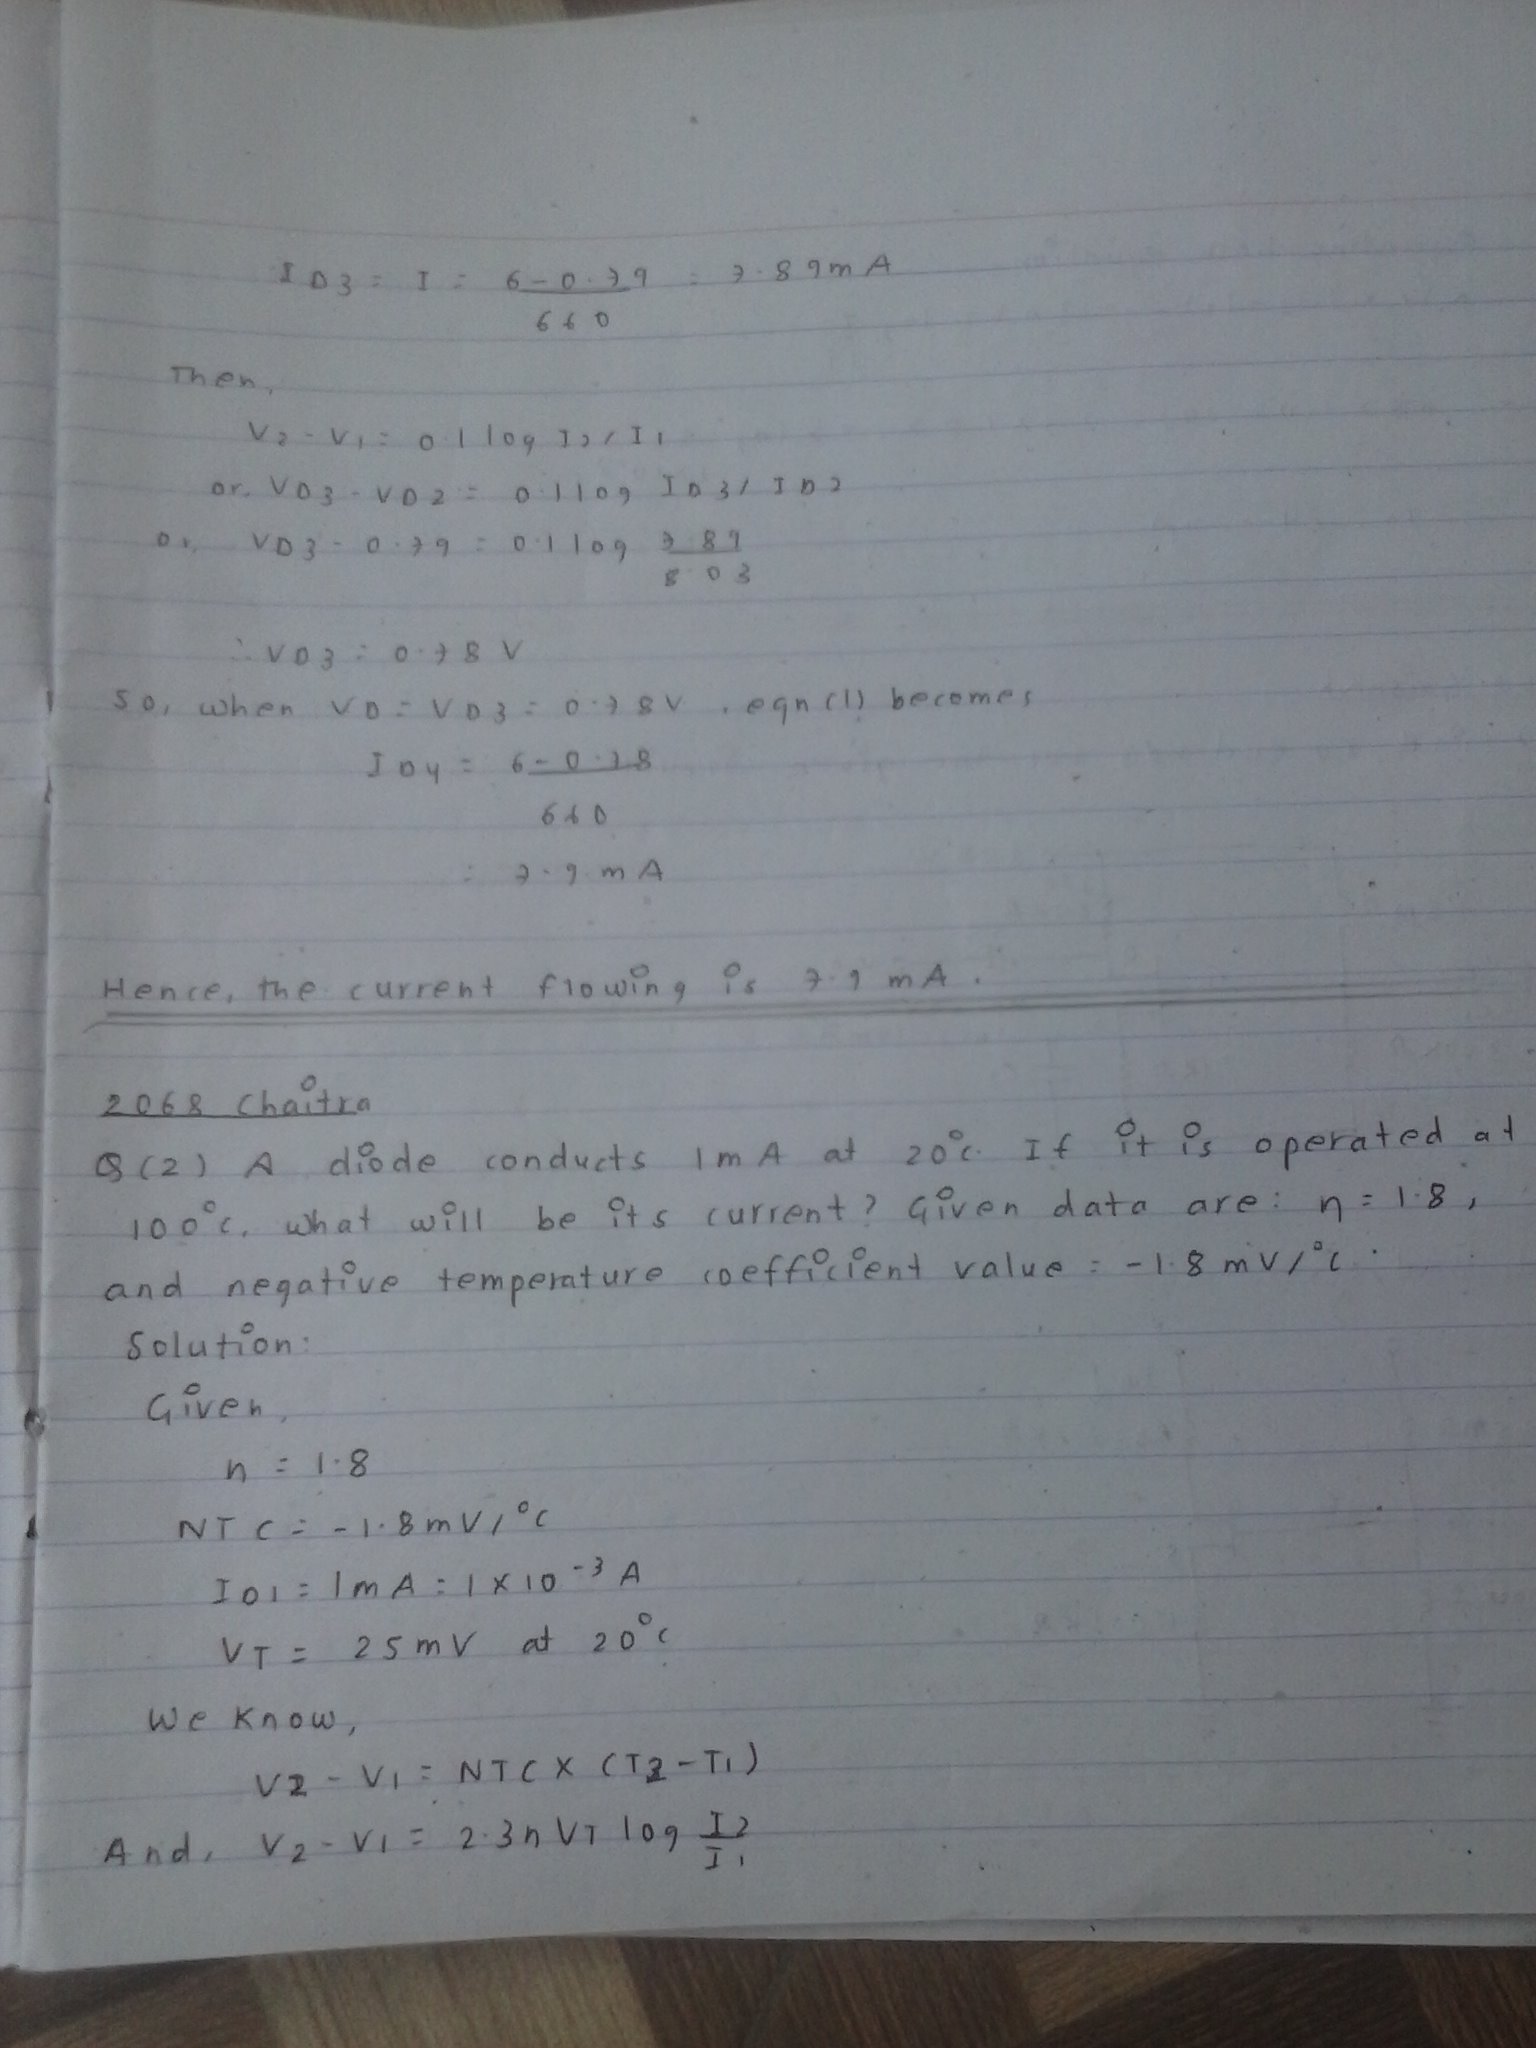 ID3 = I = 6-0.79 = 7.89mA
660
Then,
V2 - V1 = 0.1 log I2/I1
or, VD3 - VD2 = 0.1 log ID3/ID2
or, VD3 - 0.79 = 0.1 log 7.89
8.03
∴ VD3 = 0.78 V
So, when VD = VD3 = 0.78V, eqn (1) becomes
ID4 = 6-0.78
660
= 7.9 mA
Hence, the current flowing is 7.9 mA.
2068 Chaitra
Q(2) A diode conducts 1mA at 20°c. If it is operated at
100°c, what will be its current? Given data are: η = 1.8,
and negative temperature coefficient value = -1.8 mV/°c.
Solution:
Given,
n = 1.8
NTC = -1.8mV/°c
ID1 = 1mA = 1 x 10⁻³ A
VT = 25mV at 20°c
We Know,
V2 - V1 = NTC X (T2-T1)
And, V2 - V1 = 2.3n VT log I2
I1